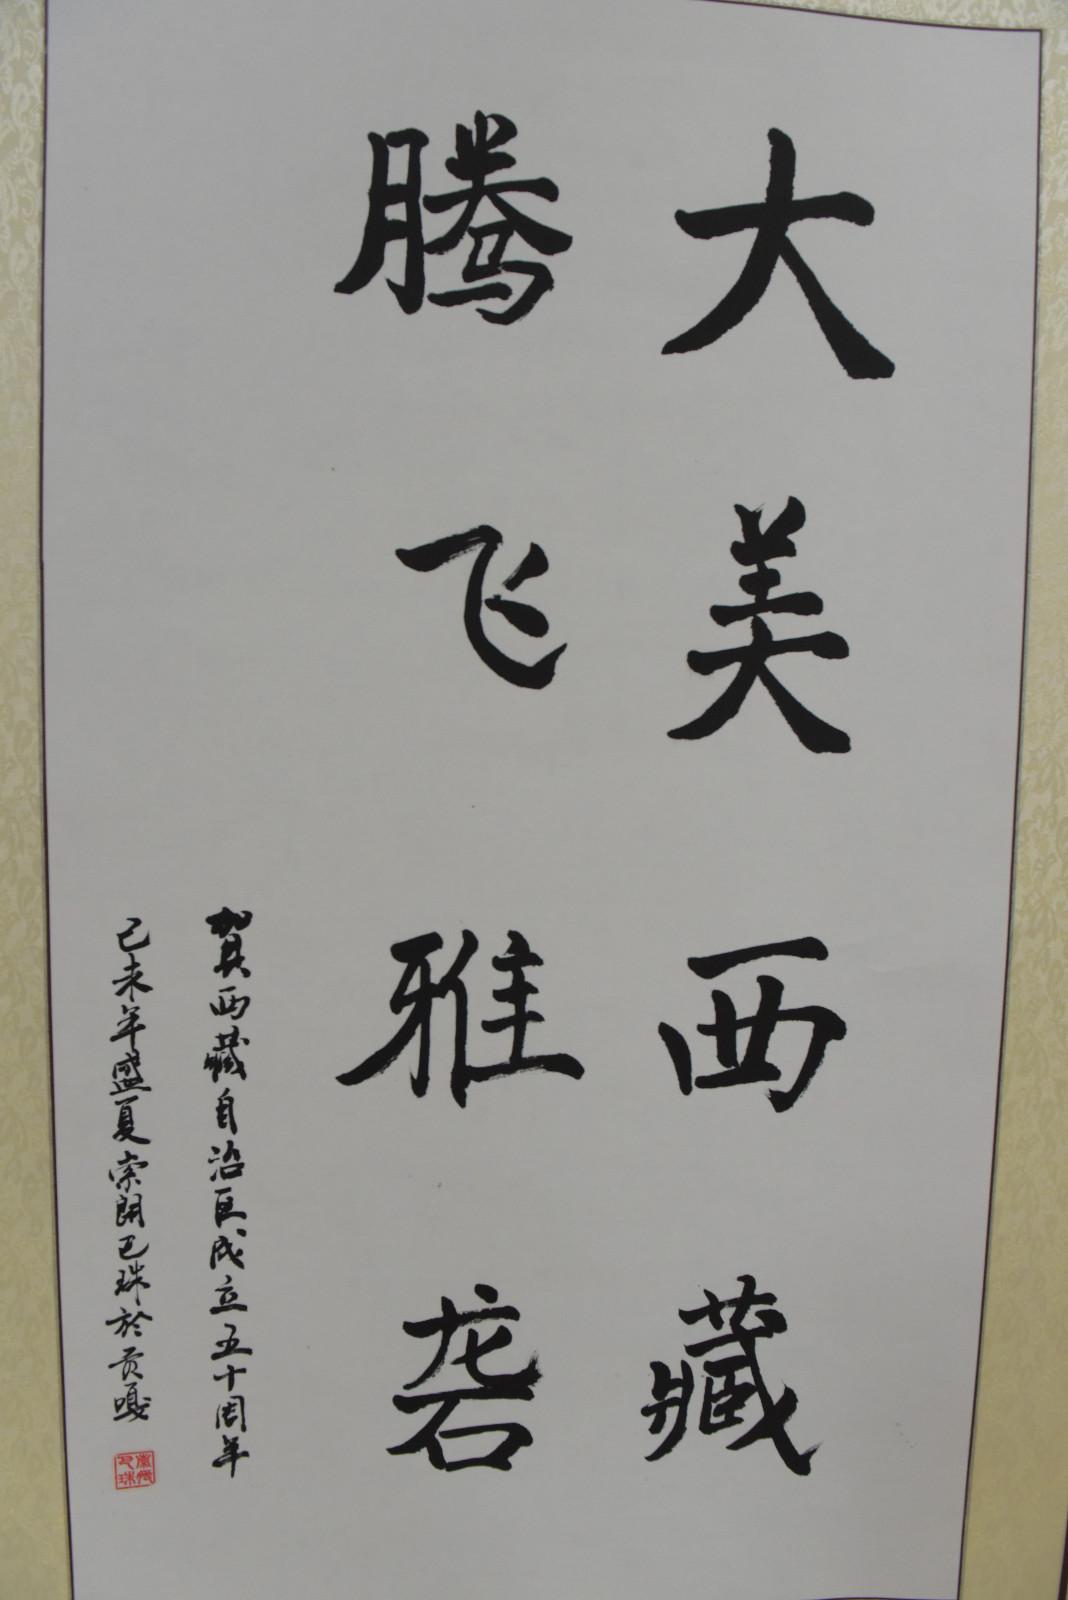 大美西藏
腾飞雅砻
贺西藏自治区成立五十周年
己未年盛夏索朗巴珠於贡嘎